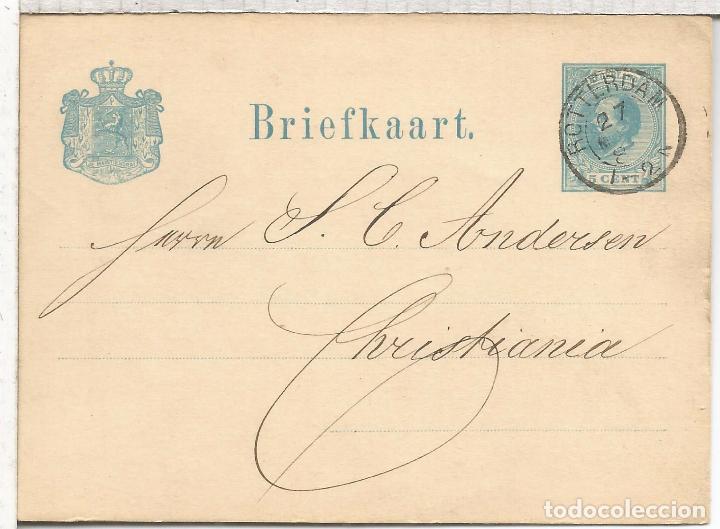 Briefkaart.
ROTTERDAM
27
5 CENT
Herrn S. C. Andersen
Christiania
todocoleccion